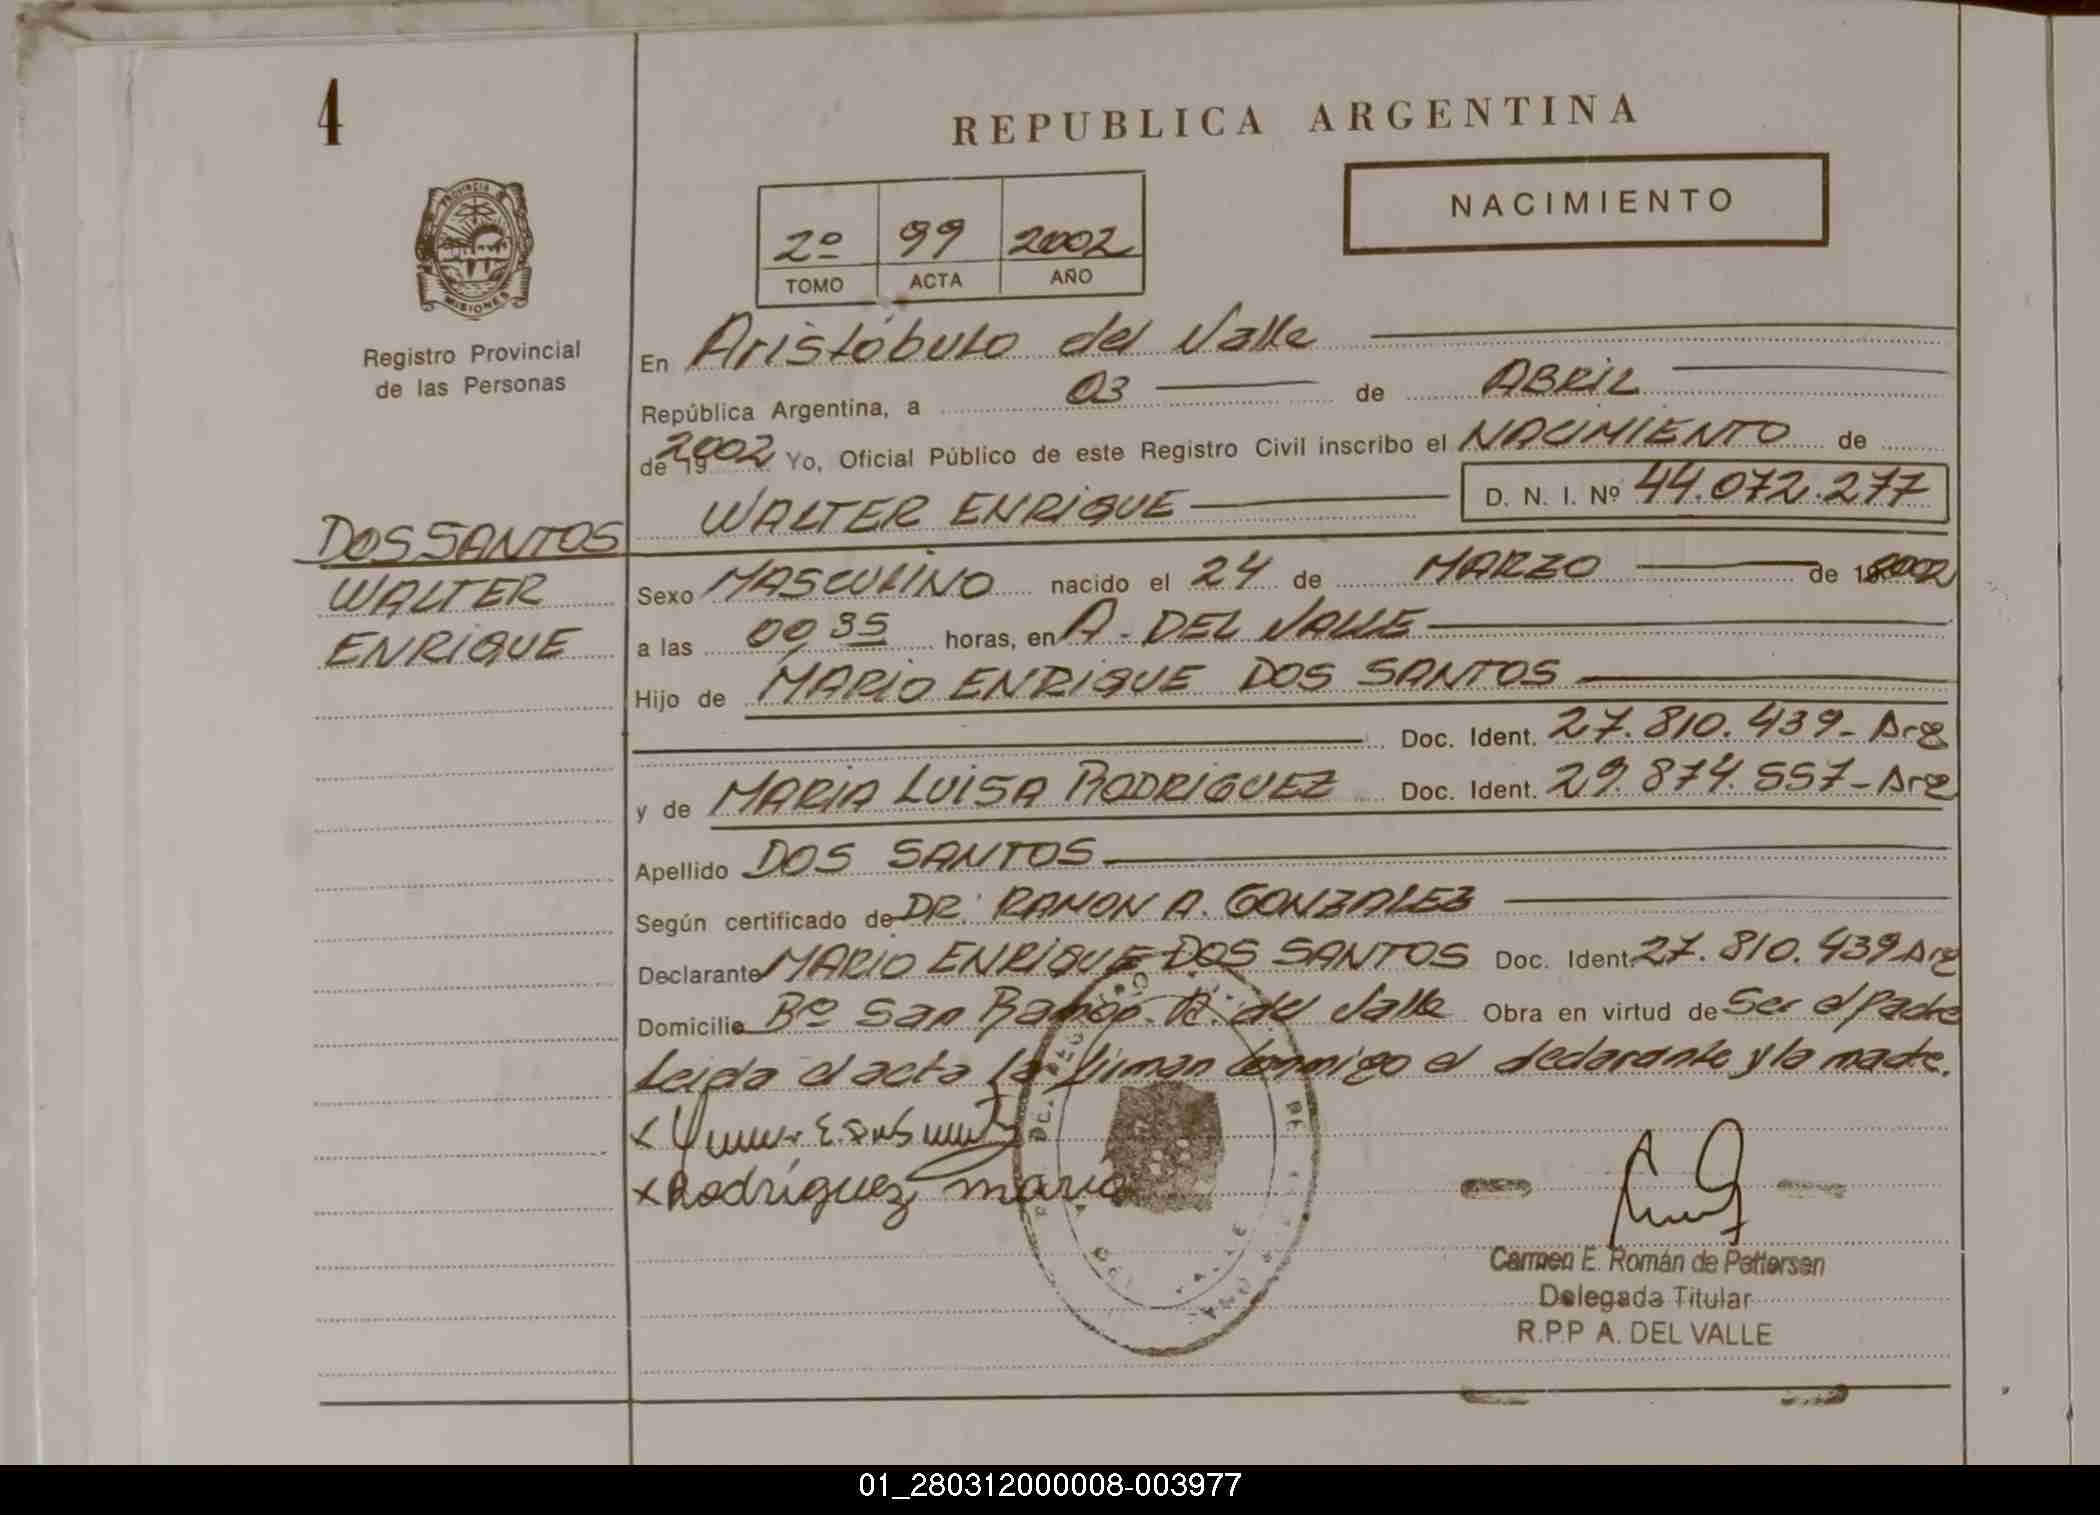 4
REPUBLICA ARGENTINA
NACIMIENTO
2º 99 2002
TOMO ACTA AÑO
PROVINCIA
MISIONES
Registro Provincial
de las Personas
En Aristóbulo del Valle
República Argentina, a 03 de ABRIL
de 19 2002 Yo, Oficial Público de este Registro Civil inscribo el NACIMIENTO de
WALTER ENRIQUE D. N. I. Nº 44.072.277
DOS SANTOS
WALTER
ENRIQUE
Sexo MASCULINO nacido el 24 de MARZO de 19 2002
a las 00,35 horas, en A. DEL VALLE
Hijo de MARIO ENRIQUE DOS SANTOS
Doc. Ident. 27.810.439- Arg
y de MARIA LUISA RODRIGUEZ Doc. Ident. 29.874.557- Arg
Apellido DOS SANTOS
Según certificado de DR. RAMON A. GONZALEZ
Declarante MARIO ENRIQUE DOS SANTOS Doc. Ident. 27.810.439 Arg
Domicilio Bº San Ramón. A. del Valle Obra en virtud de Ser el padre
Leida el acta la firman conmigo el declarante y la madre.
x E. Dos Santos
x Rodríguez maria
DEL VALLE
Carmen E. Román de Pettersen
Delegada Titular
R.P.P A. DEL VALLE
01_280312000008-003977